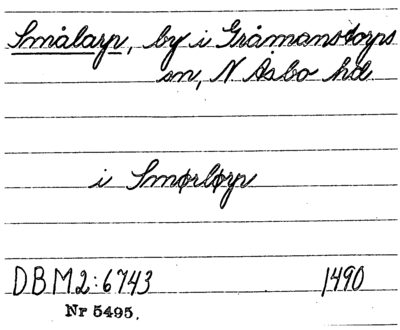 Smålarp, by i Gråmanstorps
sn, N Åsbo hd
i Smørlørp
DBM2:6743 1490
Nr 5495.